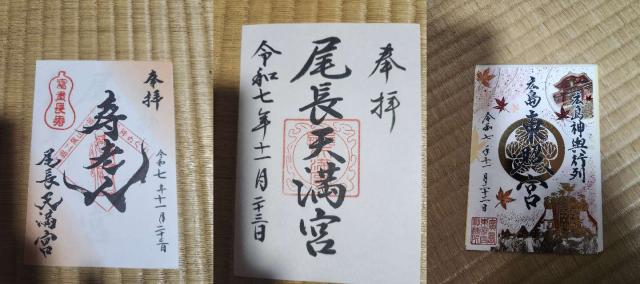 奉拝
寿老人
令和七年十一月二十三日
尾長天満宮
奉拝
尾長天満宮
令和七年十一月二十三日
広島神輿行列
広島東照宮
令和七年十一月二十三日